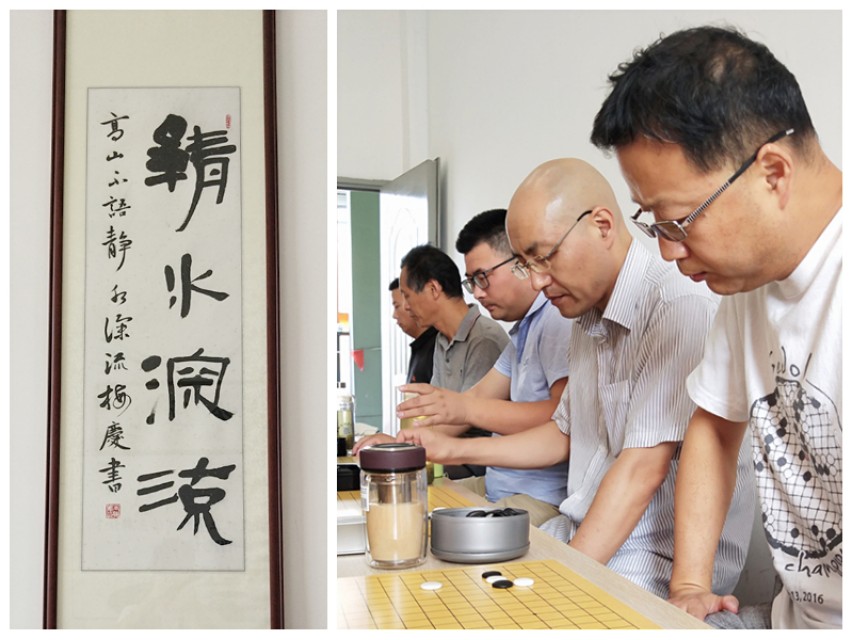 靜水深流
高山不語静水深流梅慶書
champ
13, 2016